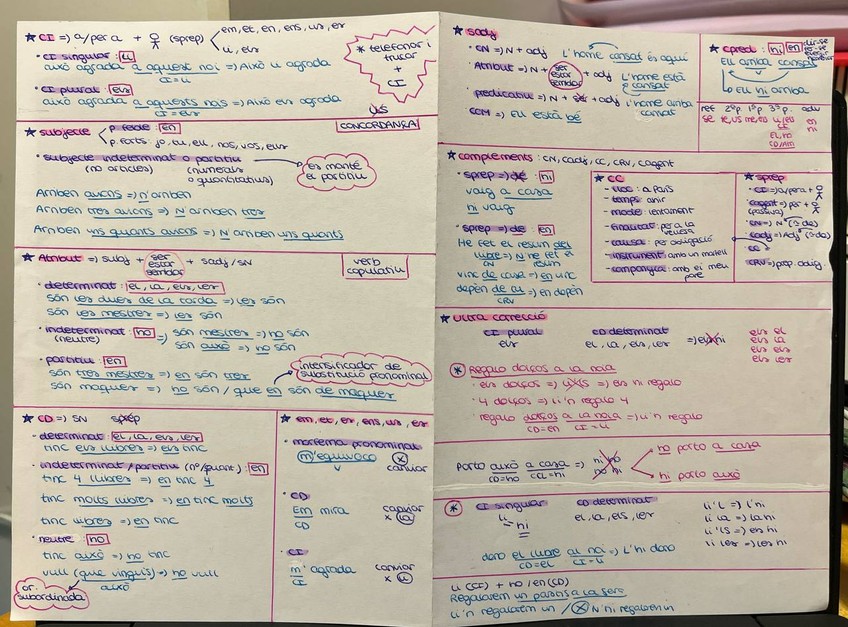 ★ CI => a/per a + (sprep) em, et, en, ens, us, es
li, els
· CI singular: li
això agrada a aquest noi => Això li agrada
CI = li
· CI plural: els
això agrada a aquests nois => Això els agrada
CI = els
* telefonar i
trucar
+
CI
★ subjecte
p. forts: jo, tu, ell, nos, vos, ells
CONCORDANÇA
· subjecte indeterminat o partitiu
(no articles) (numerals
o quantitatius)
es manté
el partitiu
Arriben avions => n'arriben
Arriben tres avions => N'arriben tres
Arriben uns quants avions => N'arriben uns quants
★ Atribut => subj + ser
estar
semblar + sadj / SN
verb
copulatiu
· determinat: el, la, els, les
són les dues de la tarda => les són
són les mestres => les són
· indeterminat: ho => són mestres => ho són
(neutre) són això => ho són
· partitiu: en
són tres mestres => en són tres
són maques => ho són / que en són de maques
intensificador de
substitució pronominal
★ CD => SN sprep
· determinat: el, la, els, les
tinc els llibres => els tinc
· indeterminat/partitiu (nº/quant.): en
tinc 4 llibres => en tinc 4
tinc molts llibres => en tinc molts
tinc llibres => en tinc
· neutre: ho
tinc això => ho tinc
vull (que vinguis) => ho vull
això
or.
subordinada
★ em, et, es, ens, us, es
· morfema pronominal
m'equivoco
v
canviar
· CD
Em mira
CD
canviar
x la
· CI
m'agrada
CI
canviar
x li
★ sadj
· CN => N + adj L'home cansat és aquí
· Atribut => N + ser
estar
semblar + adj L'home està
cansat
· predicatiu => N + ser + adj L'home arriba
cansat
· CCM => Ell està bé
★ cpred: hi en
Ell arriba cansat
Ell hi arriba
ref 2ªp 1ªp 3ªp. adv
CI
CD/Atri
★ complements: CN, cadj, CC, CRV, cagent
· sprep => de hi
vaig a casa
hi vaig
· sprep => de: en
He fet el resum del
llibre => N'he fet el
CN resum
vinc de casa => en vinc
depèn de => en depèn
CRV
★ CC
- lloc: a París
- temps: ahir
- mode: lentament
- finalitat: per a la
- causa: per obligació
- instrument: amb un martell
- companyia: amb el meu
pare
★ sprep
- CI => a/per a +
- cagent => per +
(passiva)
- CN => N (a de)
- cadj => Adj (a de)
- CC
- CRV => prep. oblig
★ ultra correcció
CI plural CD determinat
els el, la, els, les => els hi
els el
els la
els els
els les
* Regalo dolços a la noia
· 4 dolços => li'n regalo 4
· regalo dolços a la noia => li'n regalo
CD = en CI = li
Porto això a casa => hi ho
CD = ho CCL = hi ho hi
ho porto a casa
hi porto això
* CI singular CD determinat
li el, la, els, les
hi
li'l => l'hi
li la => la hi
li'ls => els hi
li les => les hi
dono el llibre al noi => L'hi dono
CD = el CI = li
li (CI) + ho / en (CD)
Regalarem un pastís a la Sera
li'n regalarem un / X N'hi regalarem un